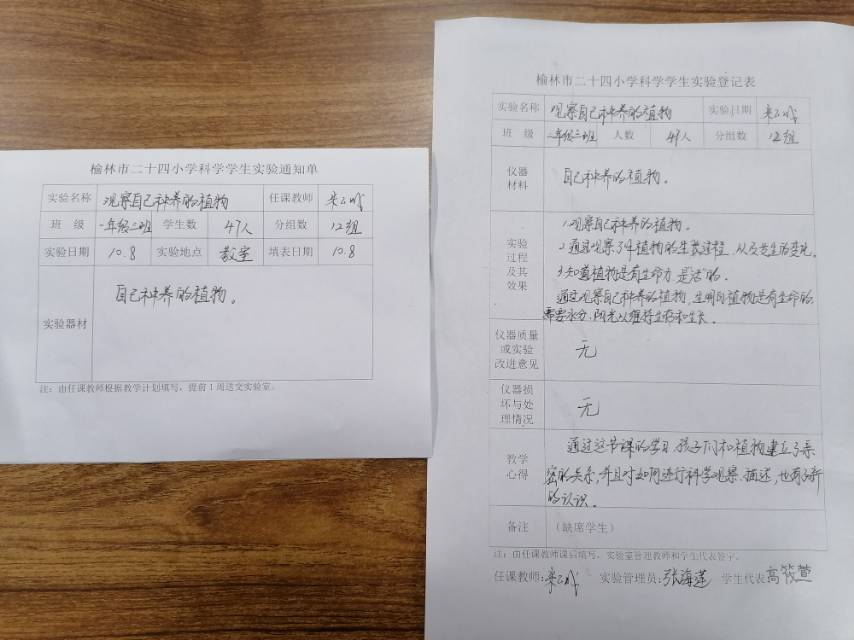 榆林市二十四小学科学学生实验通知单
实验名称 观察自己种养的植物 任课教师
班 级 一年级二班 学生数 47人 分组数 12组
实验日期 10.8 实验地点 教室 填表日期 10.8
实验器材 自己种养的植物。
注：由任课教师根据教学计划填写，提前1周送交实验室。
榆林市二十四小学科学学生实验登记表
实验名称 观察自己种养的植物 实验日期
班 级 一年级二班 人数 47人 分组数 12组
仪器材料 自己种养的植物。
实验过程及其效果
1.观察自己种养的植物。
2.通过观察了解植物的生长过程，以及发生的变化。
3.知道植物是有生命力，是活的。
通过观察自己种养的植物，生明白植物是有生命的
需要水分、阳光以维持生存和生长。
仪器质量或实验改进意见 无
仪器损坏与处理情况 无
教学心得
通过这节课的学习，孩子们和植物建立了亲
密的关系，并且对如何进行科学观察、描述，也有了新
的认识。
备注 （缺席学生）
注：由任课教师课后填写，实验室管理教师和学生代表签字。
任课教师： 实验管理员：张海莲 学生代表 高筱萱